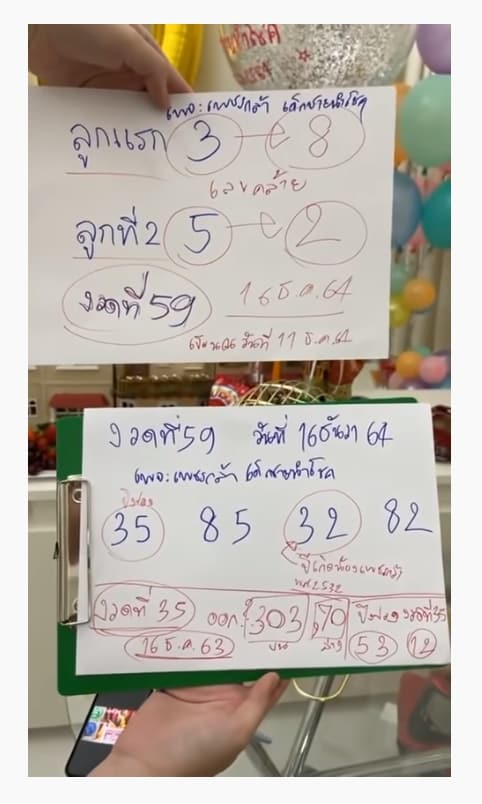 เพจ: เพชรกล้า เด็กชายนำโชค
ลูกแรก 3 - 8
เลขคล้าย
ลูกที่ 2 5 - 2
งวดที่ 59 16 ธ.ค. 64
วันที่ 11 ธ.ค. 64
งวดที่ 59 วันที่ 16 ธันวา 64
เพจ: เพชรกล้า เด็กชายนำโชค
ปิงปอง
35 85 32 82
ปีเกิดน้องเพชรกล้า
พศ 2532
งวดที่ 35 ออก: 303 70 ปิงปองงวดที่ 35
16 ธ.ค. 63 บน ล่าง 53 12